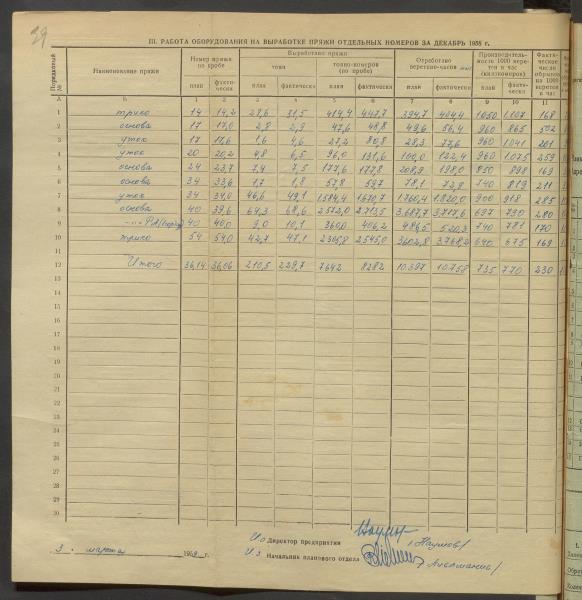 39
III. РАБОТА ОБОРУДОВАНИЯ НА ВЫРАБОТКЕ ПРЯЖИ ОТДЕЛЬНЫХ НОМЕРОВ ЗА ДЕКАБРЬ 1958 г.
Порядковый № Наименование пряжи Номер пряжи по пробе Выработано пряжи Отработано веретено-часов Производительность 1000 веретен в час (килономеров) Фактическое число обрывов на 1000 веретен в час
тонн тонно-номеров (по пробе)
план фактически план фактически план фактически план фактически план фактически
А Б 1 2 3 4 5 6 7 8 9 10 11
1 трико 14 14,2 31,5 414,4 447,7 394,7 404,4 1050 1107 168
2 основа 17 17,0 2,8 2,9 47,6 48,8 49,6 56,4 960 865
3 уток 17 17,6 1,6 4,6 27,2 80,8 28,3 77,6 960 1041 201
4 уток 20 20,2 4,8 6,5 96,0 131,6 100,0 122,4 960 1075 259
5 основа 24 23,7 7,4 7,5 177,6 177,8 208,9 198,0 850 898 169
6 основа 34 33,6 1,7 1,8 57,8 59,7 78,1 72,9 740 819 211
7 уток 34 34,0 46,6 49,1 1584,4 1670,7 1760,4 1820,0 900 918 285
8 основа 40 39,6 64,3 68,6 2572,0 2713,5 3687,7 3717,6 697 730 280
9 40 40,0 9,0 10,1 360,0 406,2 486,5 520,3 740 781 170
10 трико 54 54,0 42,7 47,1 2305,8 2545,0 3602,8 3768,2 640 675 169
11
12 Итого 36,14 36,06 210,5 229,7 7642 8282 10.397 10.758 735 770 230
13
14
15
16
17
18
19
20
21
22
23
24
25
26
27
28
29
30
Ио Директор предприятия /Наумов/
3 марта 195 г.
Начальник планового отдела